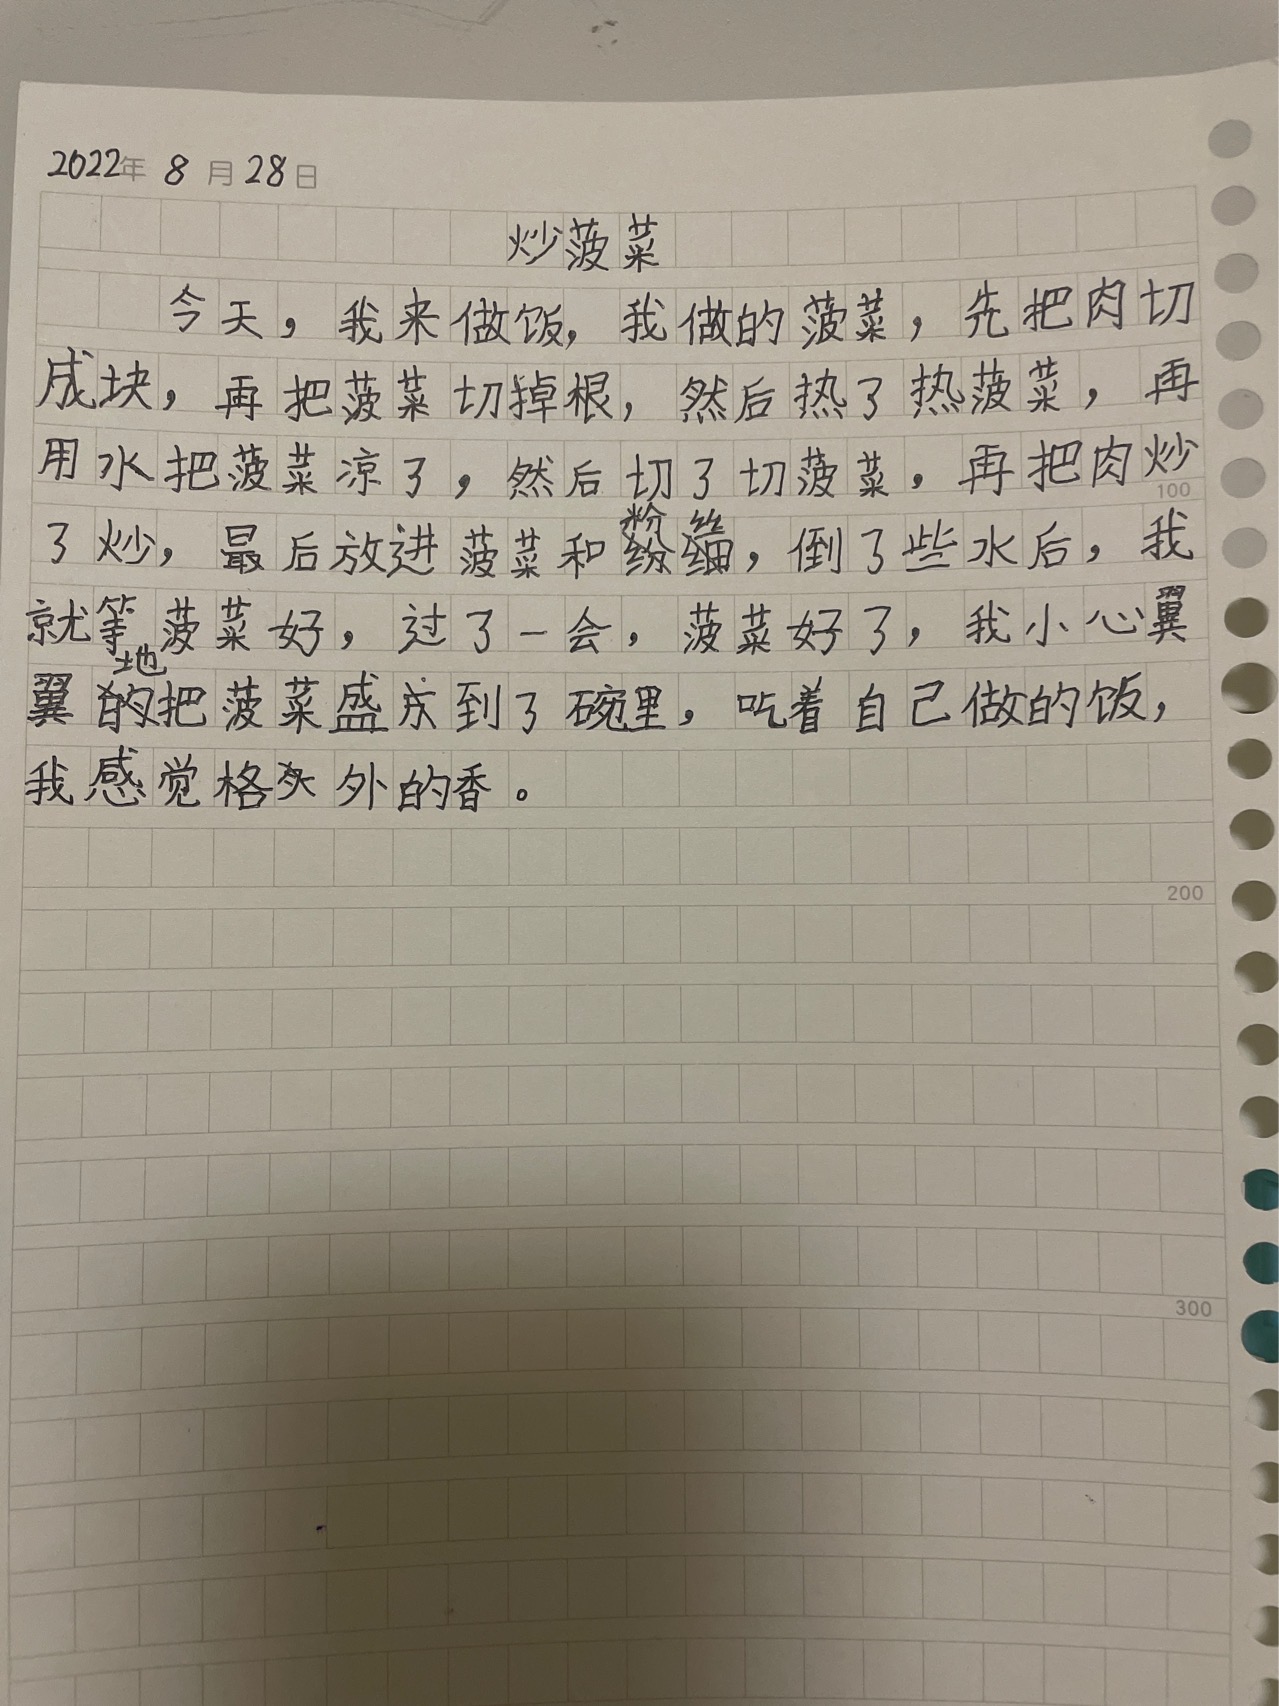 2022年 8月28日
炒菠菜
今天，我来做饭，我做的菠菜，先把肉切
成块，再把菠菜切掉根，然后热了热菠菜，再
用水把菠菜凉了，然后切了切菠菜，再把肉炒
100
了炒，最后放进菠菜和粉丝，倒了些水后，我
就等菠菜好，过了一会，菠菜好了，我小心翼
翼地把菠菜盛到了碗里，吃着自己做的饭，
我感觉格外的香。
200
300